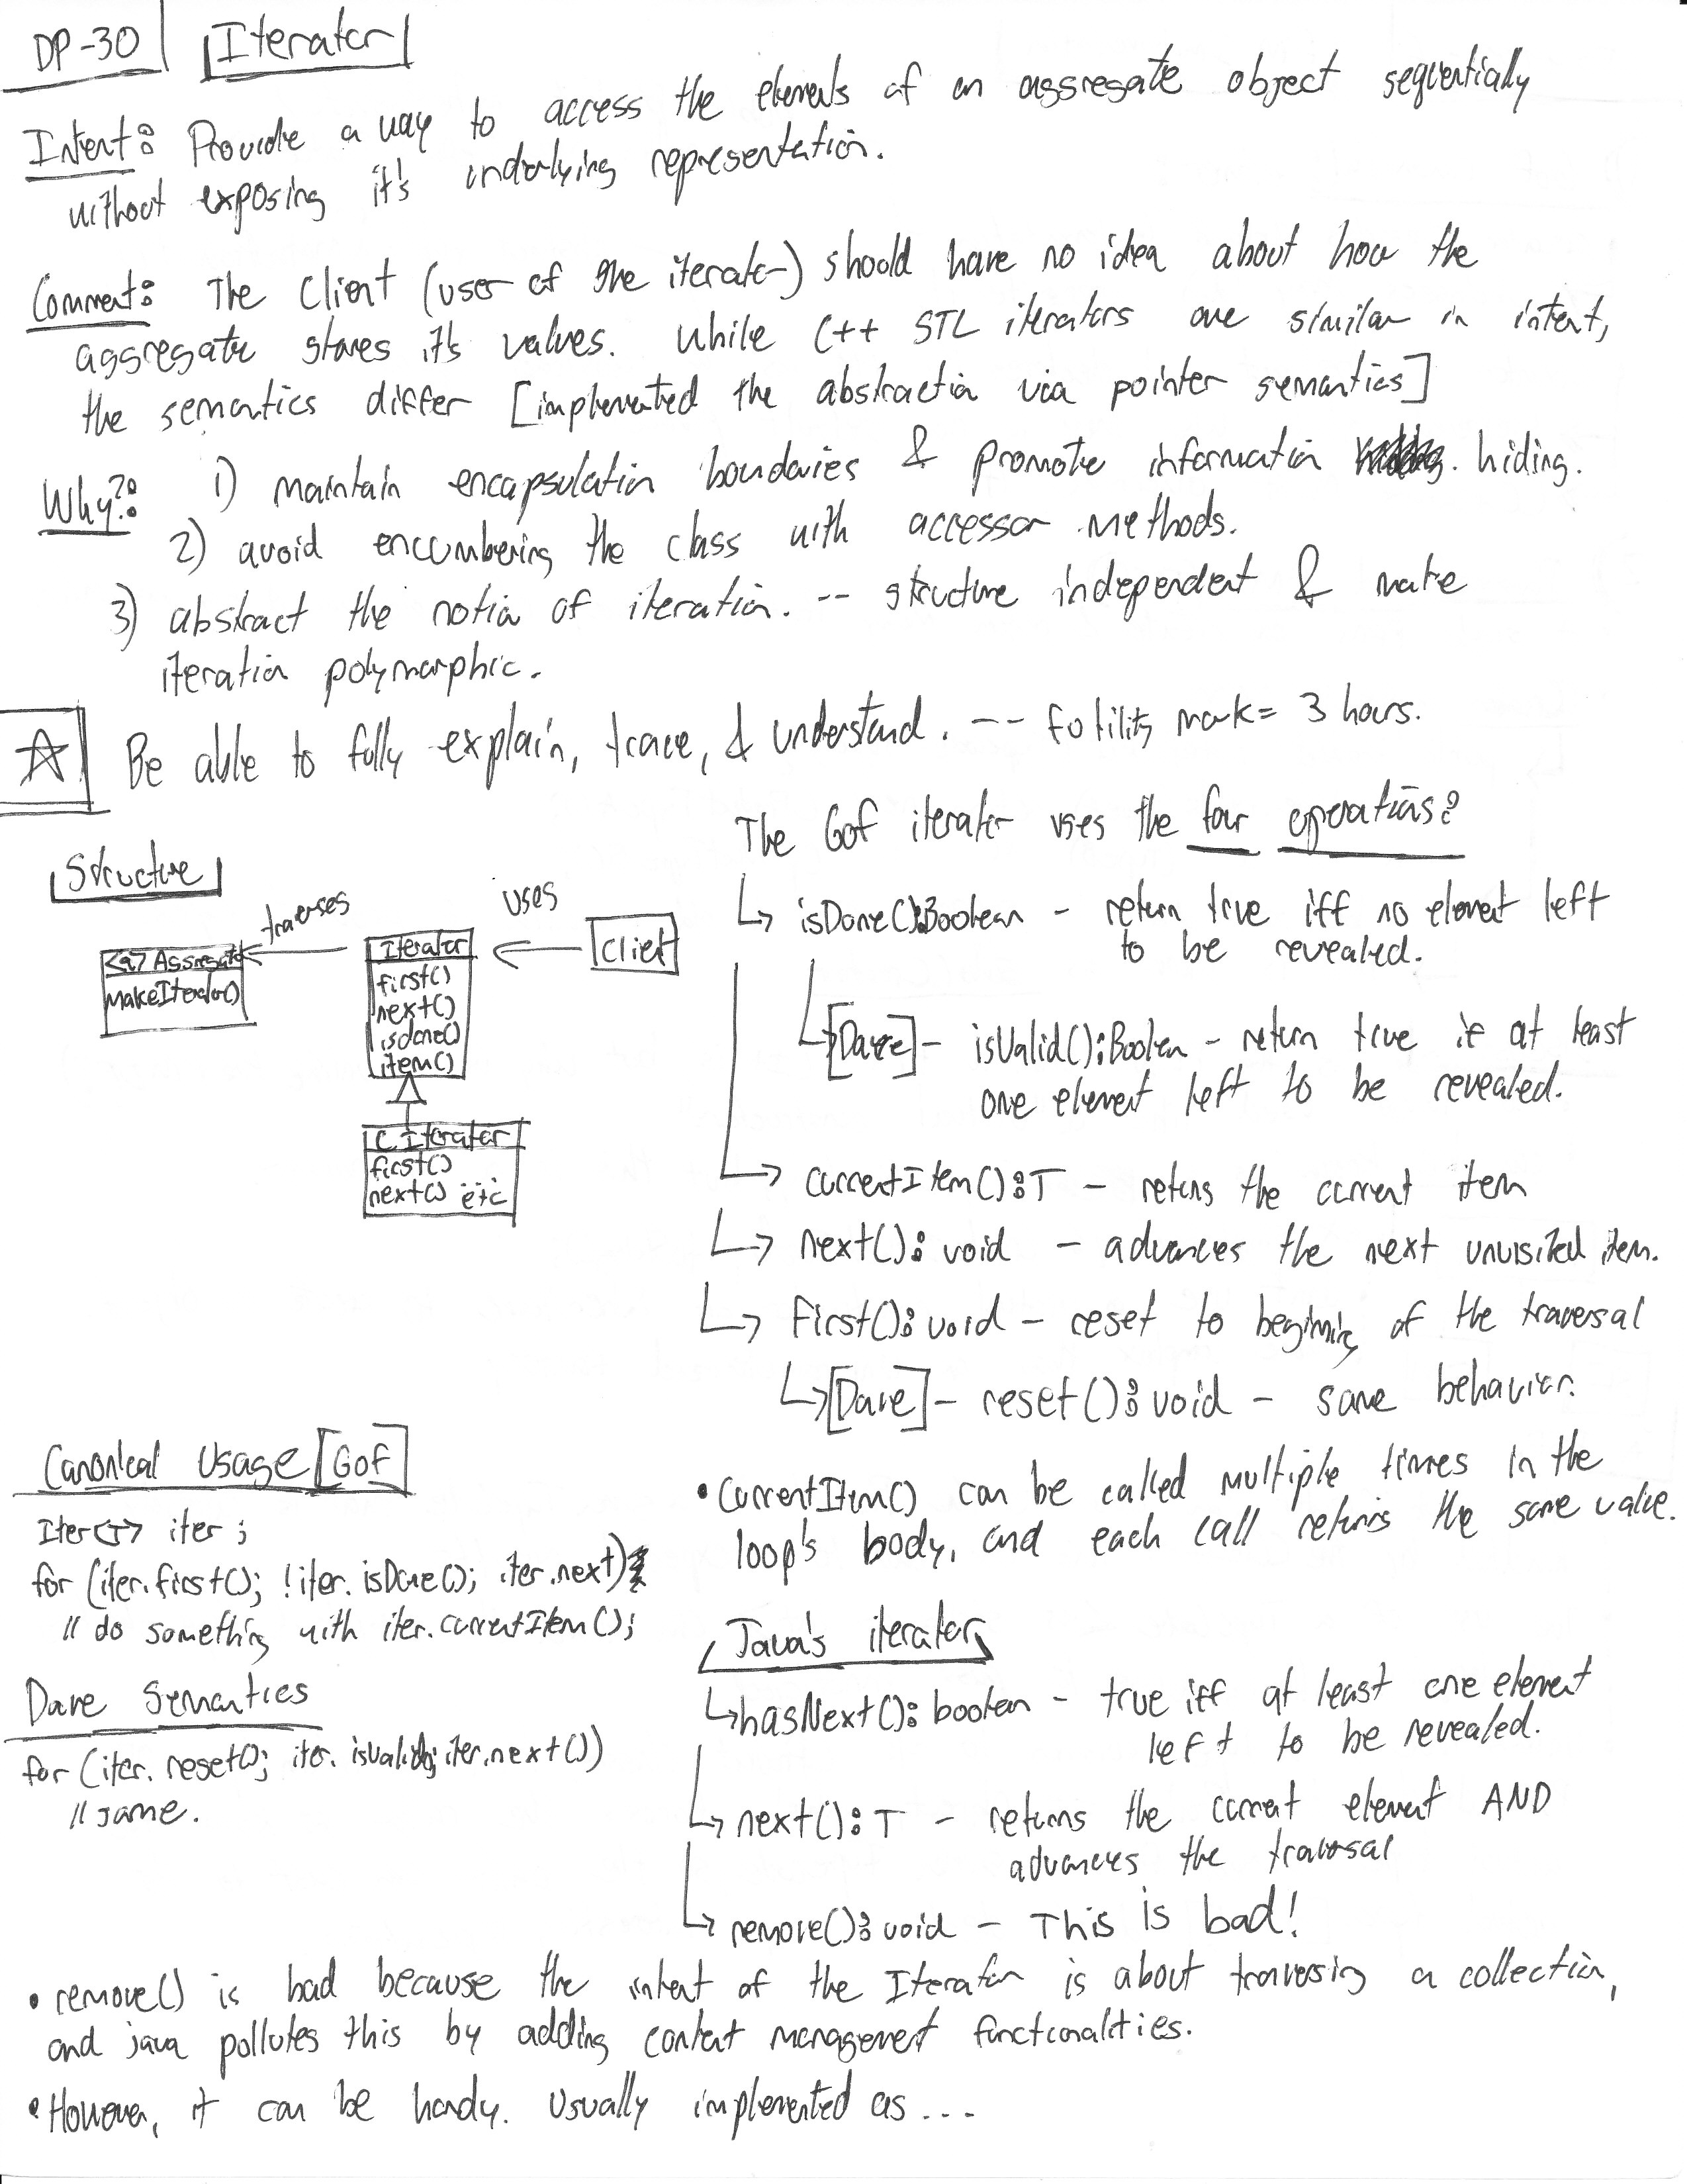 DP-30 Iterator
Intent: Provide a way to access the elements of an aggregate object sequentially
without exposing it's underlying representation.
Comment: The Client (user of the iterator) should have no idea about how the
aggregate stores it's values. While C++ STL iterators are similar in intent,
the semantics differ [implemented the abstraction via pointer semantics]
Why?: 1) maintain encapsulation boundaries & promote information hiding.
2) avoid encumbering the class with accessor methods.
3) abstract the notion of iteration. -- structure independent & make
iteration polymorphic.
☆ Be able to fully explain, trace, & understand. -- futility mark = 3 hours.
Structure
traverses
uses
<a> Aggregate
makeIterator()
Iterator
first()
next()
isdone()
item()
Client
C Iterator
first()
next() etc
The GoF iterator uses the four operations:
↳ isDone():Boolean - return true iff no element left
to be revealed.
↳ [Dave] - isValid():Boolean - return true if at least
one element left to be revealed.
↳ currentItem():T - returns the current item
↳ next(): void - advances the next unvisited item.
↳ First(): void - reset to beginning of the traversal
↳ [Dave] - reset(): void - same behavior.
• CurrentItem() can be called multiple times in the
loop's body, and each call returns the same value.
Canonical Usage [GoF]
Iter<T> iter;
for (iter.first(); !iter.isDone(); iter.next)
// do something with iter.currentItem();
Dave Semantics
for (iter.reset(); iter.isValid; iter.next())
// same.
Java's iterator
↳ hasNext(): boolean - true iff at least one element
left to be revealed.
↳ next(): T - returns the current element AND
advances the traversal
↳ remove(): void - This is bad!
• remove() is bad because the intent of the Iterator is about traversing a collection,
and java pollutes this by adding content management functionalities.
• However, it can be handy. Usually implemented as ...